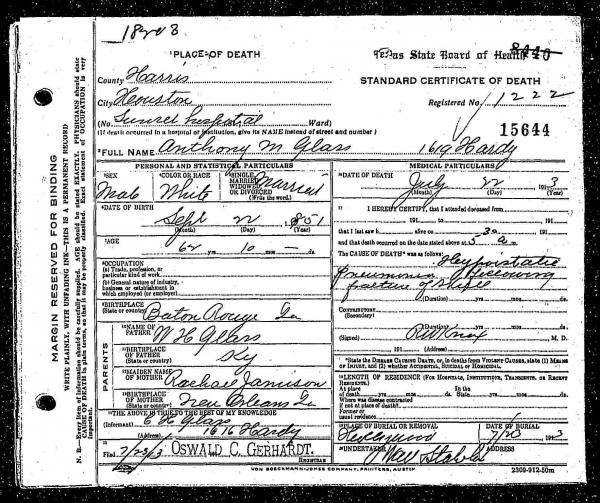 18203
PLACE OF DEATH
Texas State Board of Health
8440
County Harris
STANDARD CERTIFICATE OF DEATH
City Houston
Registered No. 1222
(No. Sunset hospital Ward)
15644
(If death occurred in a hospital or institution, give its NAME instead of street and number)
FULL NAME Anthony M Glass 1619 Hardy
PERSONAL AND STATISTICAL PARTICULARS
MEDICAL PARTICULARS
SEX Male
COLOR OR RACE White
SINGLE, MARRIED, WIDOWED OR DIVORCED (Write the word.) Married
DATE OF DEATH
July 22 1913
(Month) (Day) (Year)
DATE OF BIRTH
Sept 22 1851
(Month) (Day) (Year)
I HEREBY CERTIFY, that I attended deceased from
191 to 191
that I last saw h alive on 191
AGE
10
and that death occurred on the date stated above at
The CAUSE OF DEATH was as follows:
OCCUPATION
(a) Trade, profession, or particular kind of work
(b) General nature of industry, business or establishment in which employed (or employer)
pneumonia following
(Duration) yrs. mos. ds.
BIRTHPLACE (State or country) Baton Rouge La
CONTRIBUTORY (Secondary)
(Duration) yrs. mos. ds.
NAME OF FATHER W H Glass
(Signed) R W Knox M. D.
191 (Address)
BIRTHPLACE OF FATHER (State or country) Ky
State the DISEASE CAUSING DEATH, or, in deaths from VIOLENT CAUSES, state (1) MEANS OF INJURY, and (2) whether ACCIDENTAL, SUICIDAL OR HOMICIDAL.
PARENTS
MAIDEN NAME OF MOTHER Rachael Jamison
LENGTH OF RESIDENCE (FOR HOSPITALS, INSTITUTIONS, TRANSIENTS, OR RECENT RESIDENTS.)
At place of death yrs. mos. ds. State yrs. mos. ds.
Where was disease contracted if not at place of death?
Former or usual residence
BIRTHPLACE OF MOTHER (State or country) New Orleans La
THE ABOVE IS TRUE TO THE BEST OF MY KNOWLEDGE
(Informant) E H Glass
(Address) 1616 Hardy
PLACE OF BURIAL OR REMOVAL
DATE OF BURIAL
Hollywood
Filed 7/23/13 OSWALD C. GERHARDT.
REGISTRAR
UNDERTAKER
ADDRESS
VON BOECKMANN-JONES COMPANY, PRINTERS, AUSTIN
2309-912-50m
MARGIN RESERVED FOR BINDING
WRITE PLAINLY, WITH UNFADING INK—THIS IS A PERMANENT RECORD
N. B.—Every item of information should be carefully supplied. AGE should be stated EXACTLY. PHYSICIANS should state CAUSE OF DEATH in plain terms, so that it may be properly classified. Exact statement of OCCUPATION is very important.